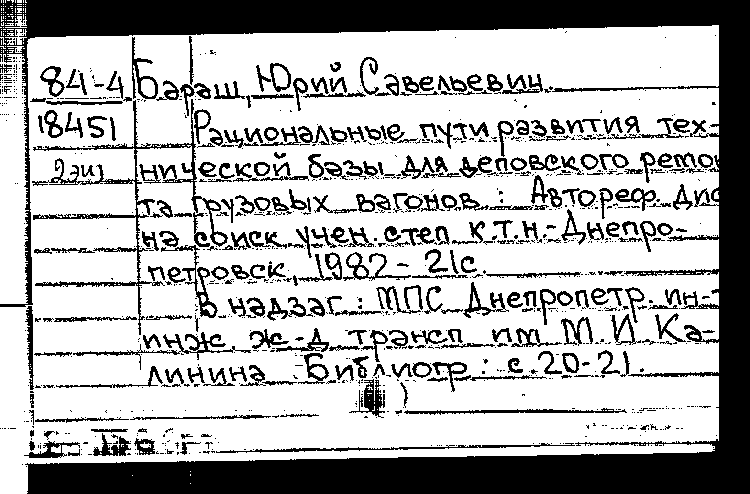 84-4 Бараш, Юрий Савельевич.
18451 Рациональные пути развития тех-
2 экз нической базы для деповского ремон
та грузовых вагонов : Автореф. Дис
на соиск учен. степ к.т.н.-Днепро-
петровск, 1982 - 21с.
В надзаг : МПС Днепропетр. ин-т
инж. ж-д трансп им М. И Ка-
линина Библиогр : с. 20-21.